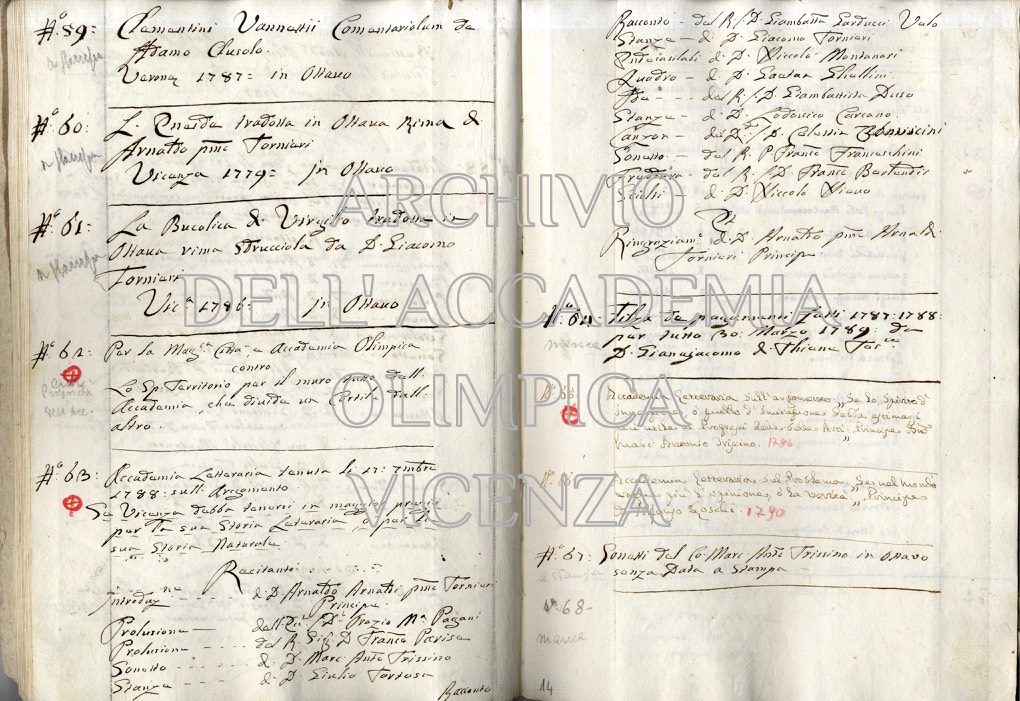 N.º 59: Clementini Vannettii Comentariolum de
a stampa
Adamo Clusolo.
Verona 1787: in Ottavo
N.º 60: L'Eneide tradotta in Ottava Rima di
a stampa
Arnaldo pmo Tornieri
Vicenza 1779: in Ottavo
N.º 61: La Bucolica di Virgilio tradotta in
a stampa
Ottava rima sdrucciola da D. Giacomo
Tornieri
Vic.ª 1786: in Ottavo
N.º 62: Per la Mag.ca Città, e Accademia Olimpica
contro
Lo Sp. Territorio per il muro fatto dell'
Accademia, che divide un Cortile dall'
altro.
N.º 63: Accademia Letteraria tenuta li 17: 7mbre
1788: sull'Argomento
Se Vicenza debba tenersi in maggior pregio
per la sua Storia Letteraria o per la
sua Storia Naturale.
Recitanti
Introduz.ne - di D. Arnaldo Arnaldi pmo Tornieri
Principe
Prolusione - dell' D. Orazio M.ª Pagani
Prolusione - del R. Sig. D. Franco Parise
Sonetto - di D. Marc. Ant.º Trissino
Stanze - di D. Giulio Tortosa
Racconto
Racconto - del R. S. D. Giambatta Carducci Velo
Stanze - di D. Giacomo Tornieri
Endecasilabi di D. Niccolò Montanari
Quadro - di D. Gaetan Ghellini
Ode - del R. S. D. Giambattista Duso
Stanze - di D. Lodovico Carcano
Canzon - del D. Celestin Bonvicini
Sonetto - del R. P. Franco Franceschini
del R. S. D. Franco
Sciolti - di D. Niccolò
Et
Ringraziam.to di D. Arnaldo pmo Arnaldi
Tornieri Principe.
N.º 64: Filza de pagamenti fatti 1787: 1788:
manca
per tutto 30: Marzo 1789: da
D. Gianajacomo di Thiene
N.º 65 Accademia Letteraria sull'argomento „ Se lo spirito d'
Invenzione, o quello d'Imitazione debba
più utile a' Progressi delle belle Arti. „ Principe
Marc' Antonio Trissino. 1786
N.º 66 Accademia Letteraria sul Problema, se nel mondo
più l'opinione, o la verità „ Principe
Loschi. 1790
N.º 67: Sonetti del Co: Marc. Ant.º Trissino in Ottavo
a stampa
senza Data a Stampa
N.º 68 -
manca
14
ARCHIVIO
DELL'ACCADEMIA
OLIMPICA
VICENZA